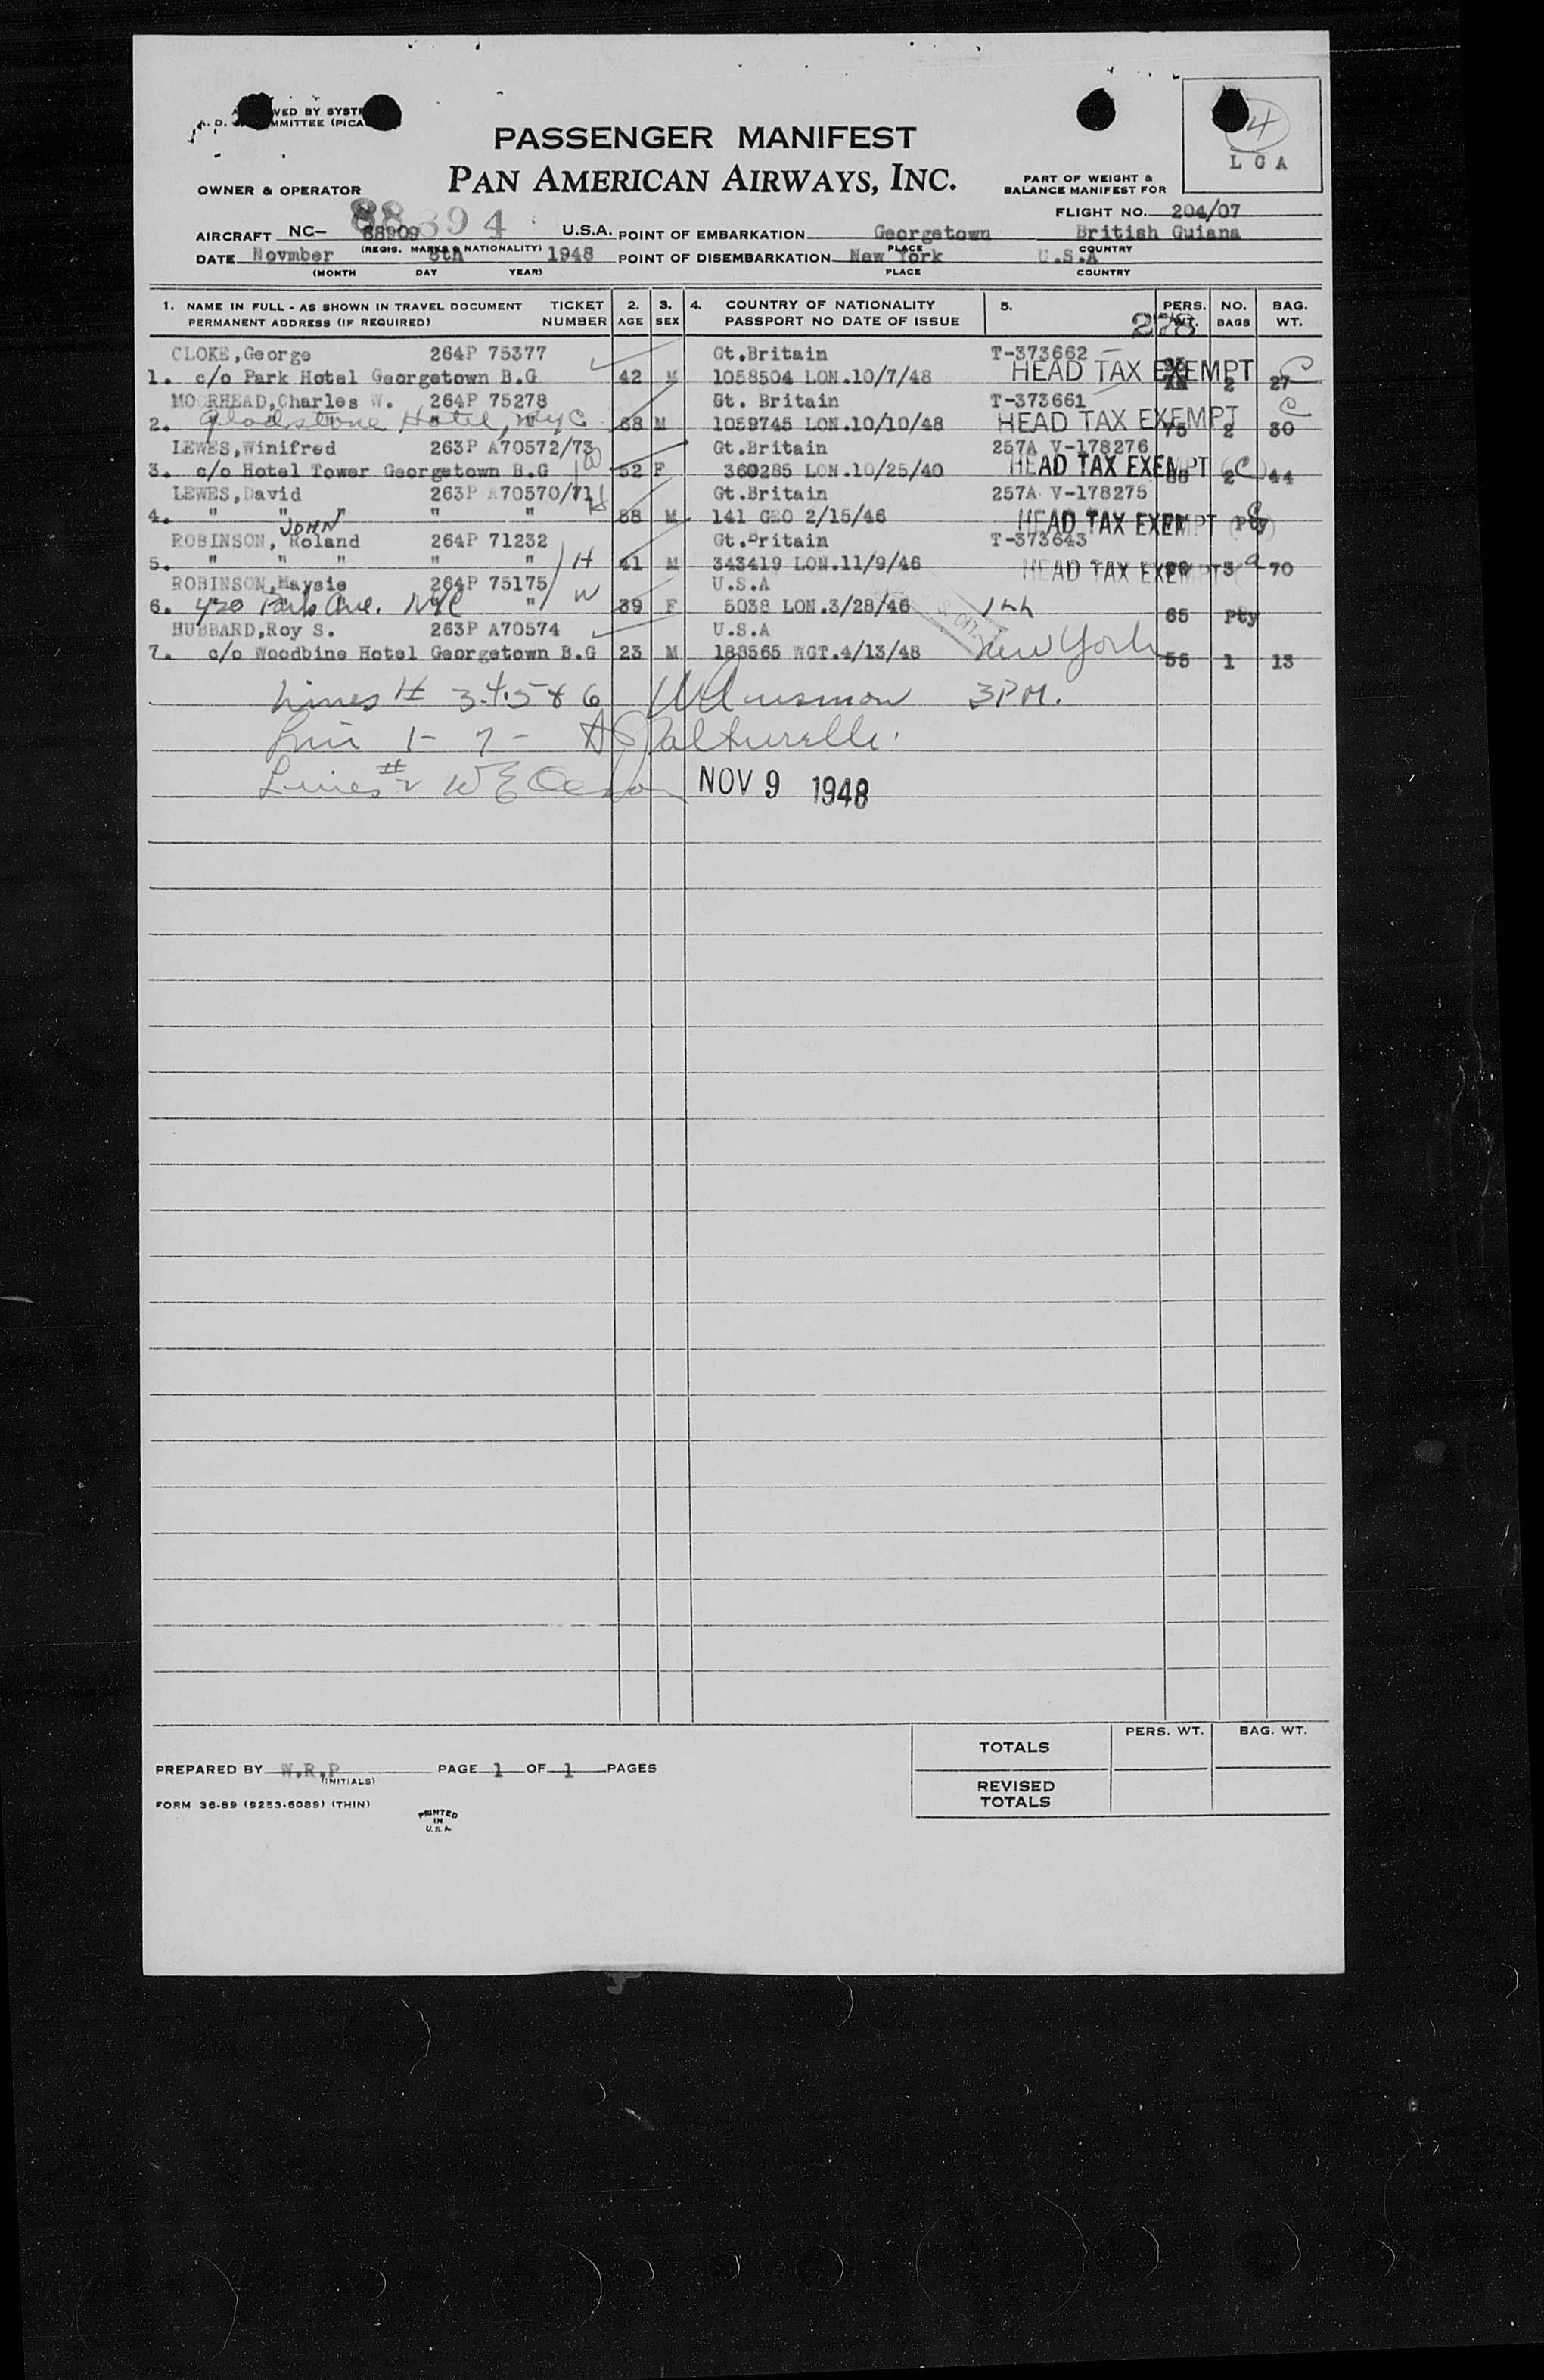 PASSENGER MANIFEST
PAN AMERICAN AIRWAYS, INC.
4
L G A
OWNER & OPERATOR
PART OF WEIGHT &
BALANCE MANIFEST FOR
FLIGHT NO. 204/07
AIRCRAFT NC- 88909 U.S.A. POINT OF EMBARKATION Georgetown British Guiana
(REGIS. MARKS & NATIONALITY) PLACE COUNTRY
DATE Novmber 8th 1948 POINT OF DISEMBARKATION New York U.S.A
(MONTH DAY YEAR) PLACE COUNTRY
1. NAME IN FULL - AS SHOWN IN TRAVEL DOCUMENT TICKET 2. 3. 4. COUNTRY OF NATIONALITY 5. PERS. NO. BAG.
PERMANENT ADDRESS (IF REQUIRED) NUMBER AGE SEX PASSPORT NO DATE OF ISSUE WT. BAGS WT.
278
CLOKE,George 264P 75377 Gt.Britain T-373662
1. c/o Park Hotel Georgetown B.G 42 M 1058504 LON.10/7/48 HEAD TAX EXEMPT 2 27 C
MOORHEAD,Charles W. 264P 75278 Gt. Britain T-373661 C
2. Gladstone Hotel, NYC M 1059745 LON.10/10/48 HEAD TAX EXEMPT 75 2 30
LEWES,Winifred 263P A70572/73 Gt.Britain 257A V-178276
3. c/o Hotel Tower Georgetown B.G W 52 F 360285 LON.10/25/40 HEAD TAX EXEMPT 2 C 44
LEWES,David 263P A70570/71 Gt.Britain 257A V-178275
4. " " " " " M 141 GEO 2/15/46 HEAD TAX EXEMPT Pty
JOHN
ROBINSON, Roland 264P 71232 Gt.Britain T-373643
5. " " " " " H 41 M 343419 LON.11/9/46 HEAD TAX EXEMPT 3 70
ROBINSON,Maysie 264P 75175 U.S.A
6. 420 Park Ave. NYC " W 39 F 5038 LON.3/28/46 65 Pty
HUBBARD,Roy S. 263P A70574 U.S.A
7. c/o Woodbine Hotel Georgetown B.G 23 M 188565 WGT.4/13/48 New York 55 1 13
Lines # 3.4.5 & 6 3 P.M.
Line 1 - 7 -
Lines # 2 NOV 9 1948
TOTALS PERS. WT. BAG. WT.
PREPARED BY W.R.P PAGE 1 OF 1 PAGES
(INITIALS)
REVISED
TOTALS
FORM 36-89 (9253-6089) (THIN)
PRINTED
IN
U.S.A.